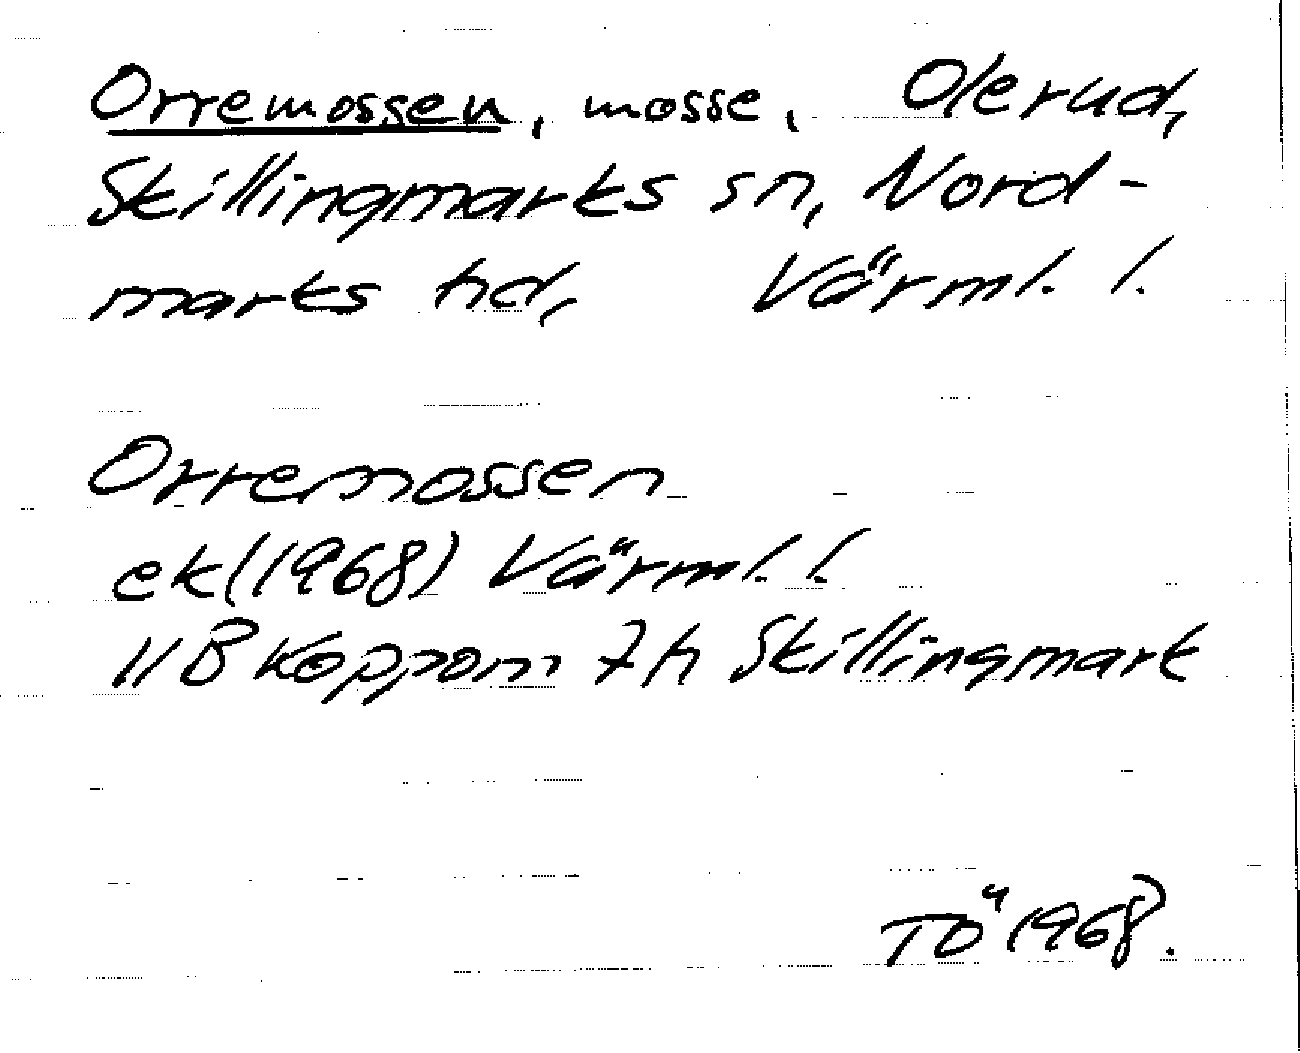 Orremossen, mosse, Olerud,
Skillingmarks sn, Nord-
marks hd, Värml. l.
Orremossen
ek (1968) Värml. l.
11B Koppom 7h Skillingmark
TÖ 1968.